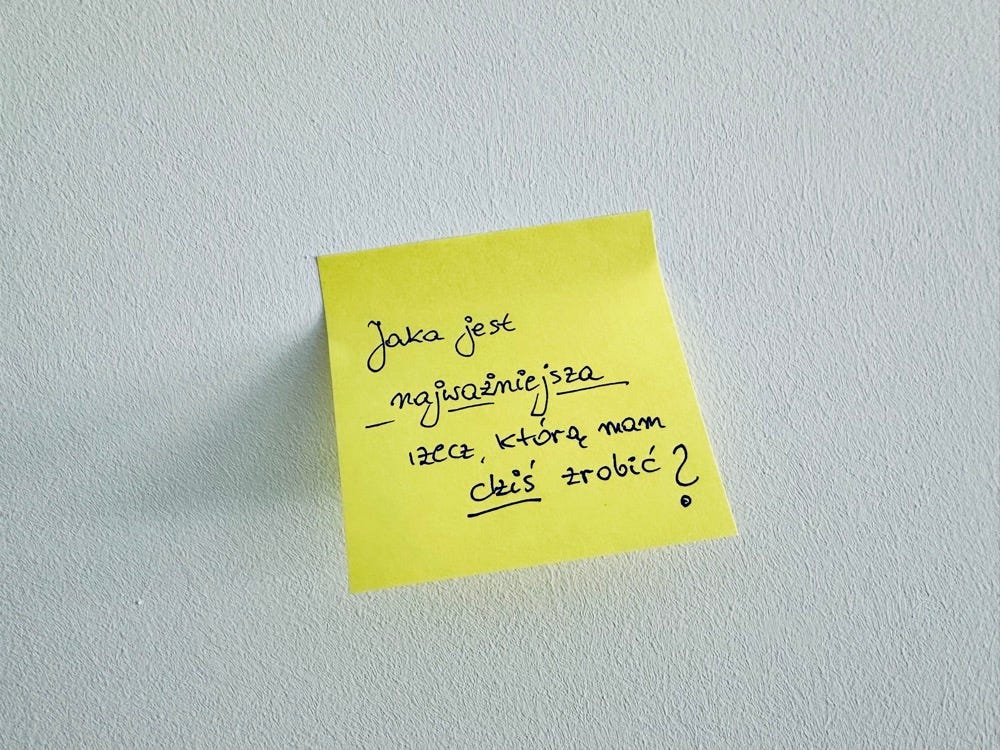 Jaka jest
najważniejsza
rzecz, którą mam
dziś zrobić?